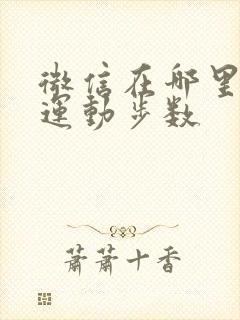 微信在哪里
運動步数
萧萧十香